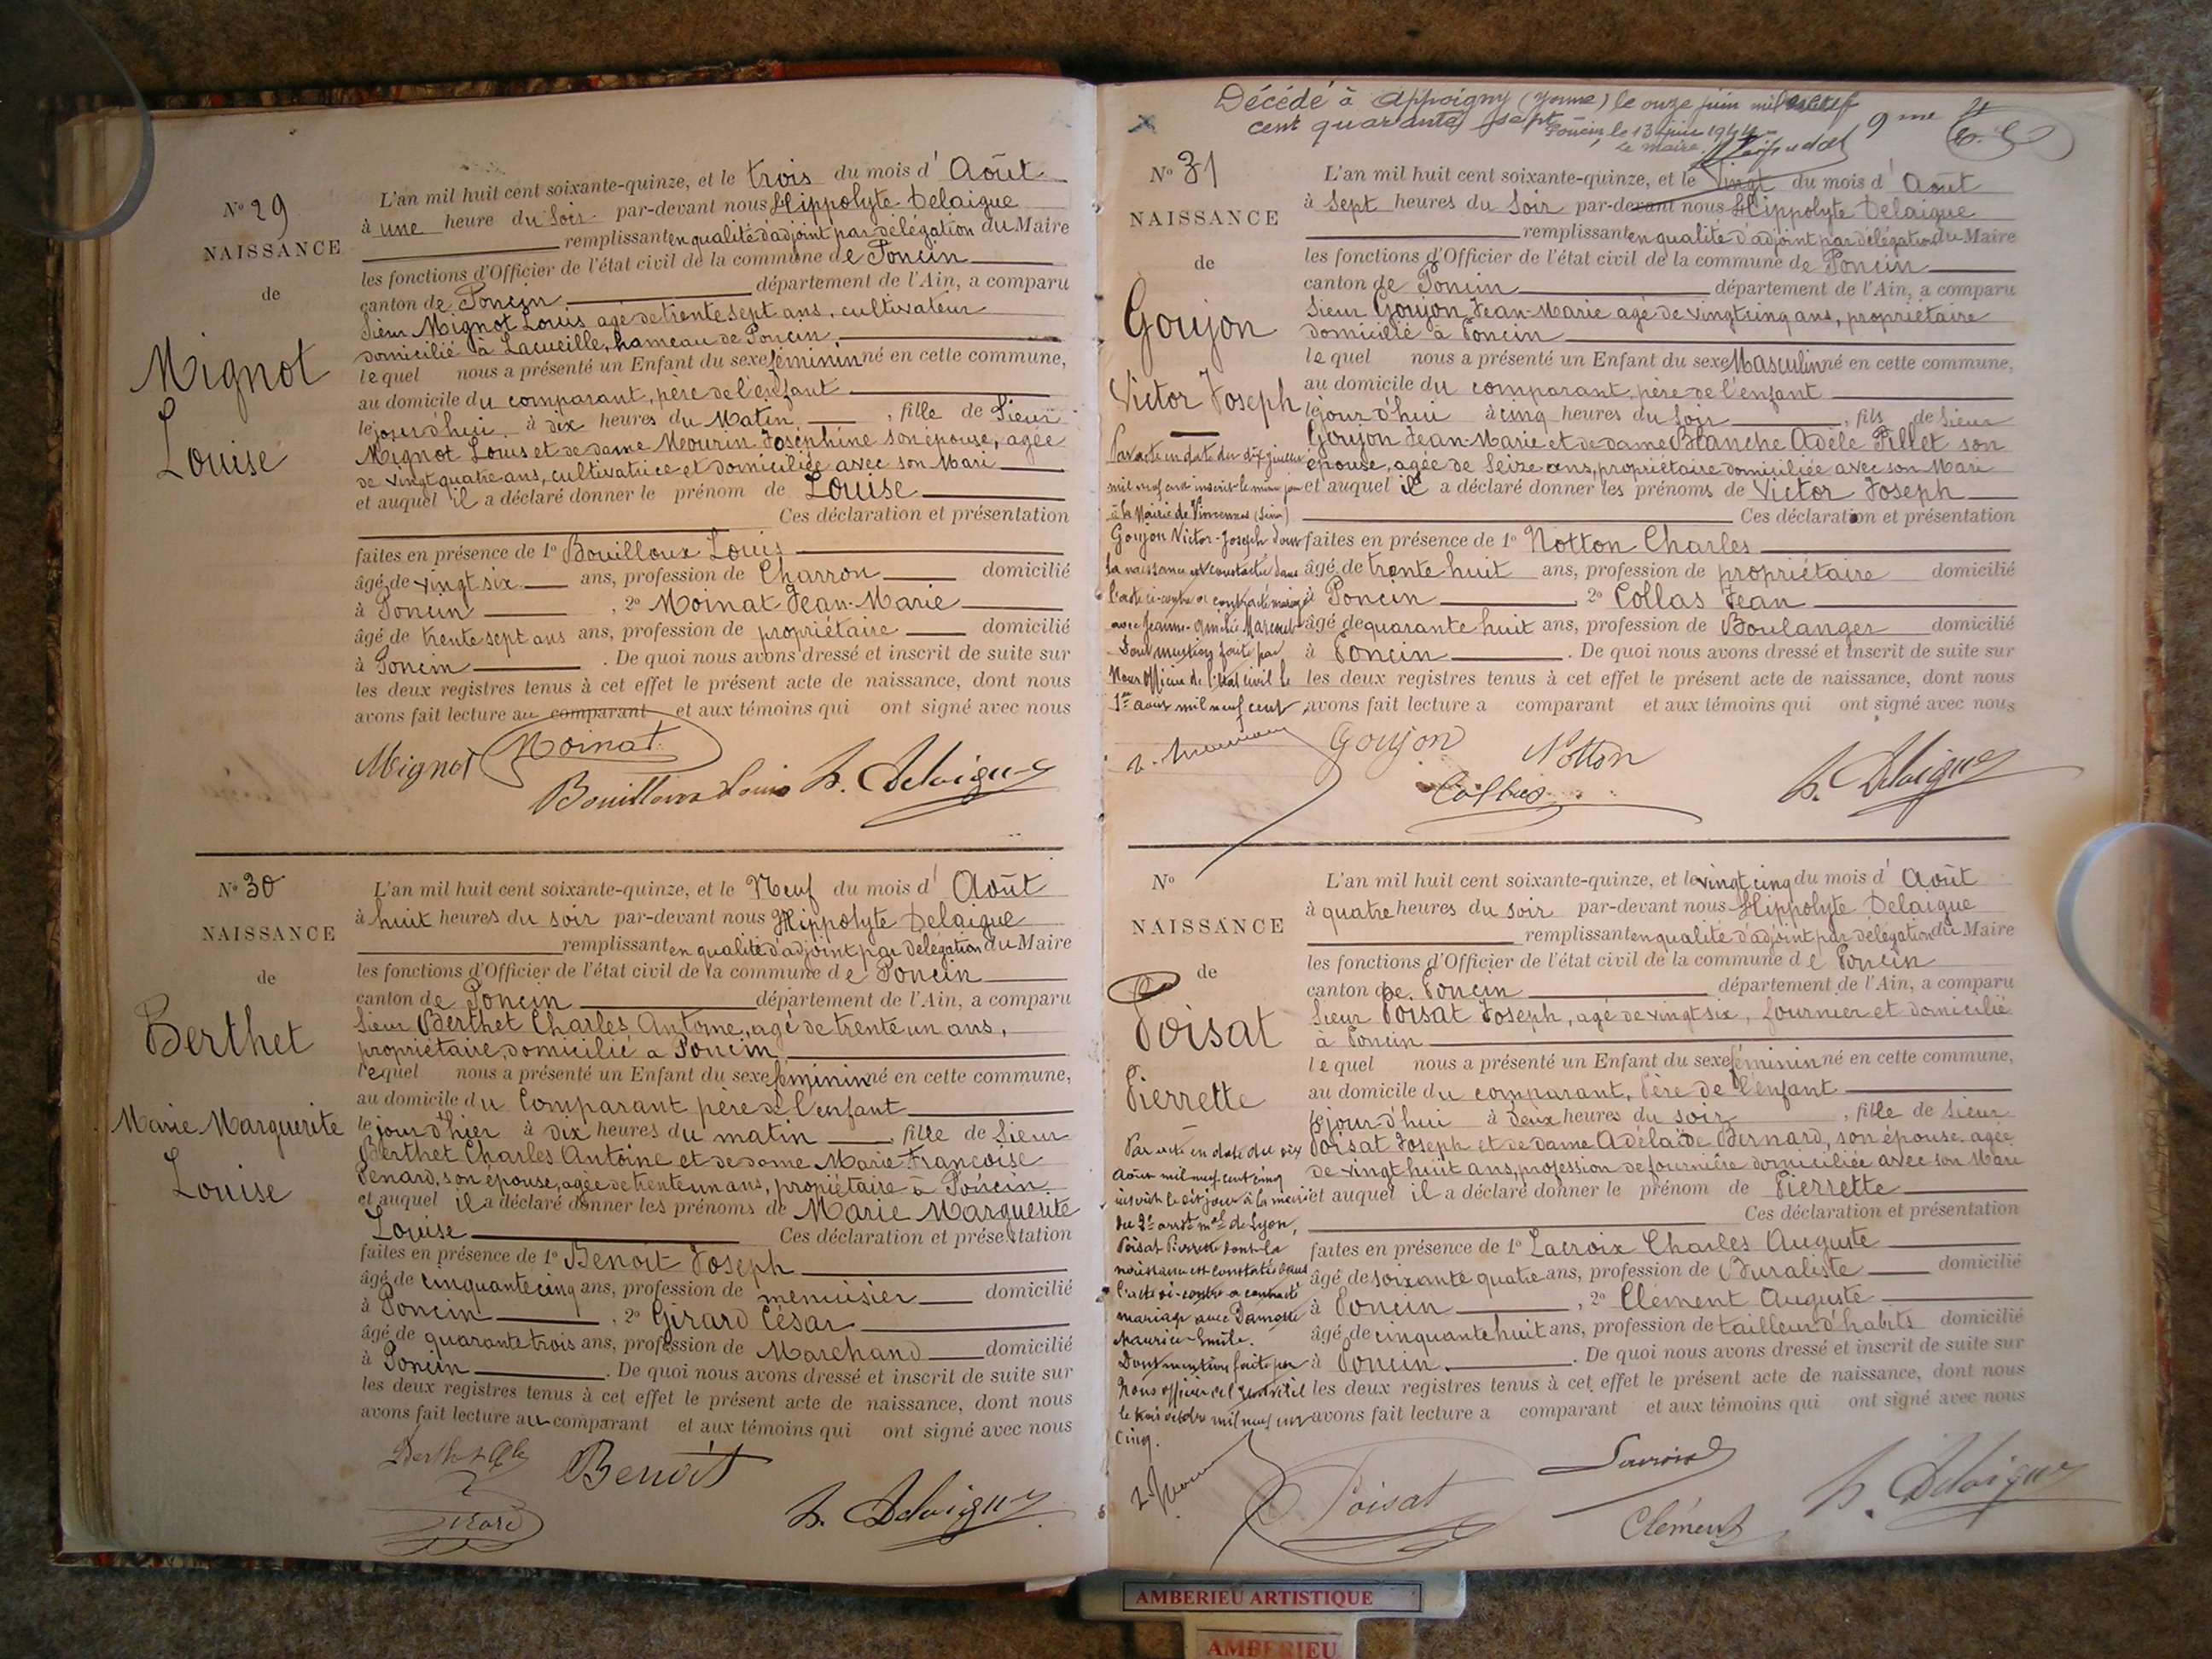 N° 29
NAISSANCE
de
Mignot
Louise
L'an mil huit cent soixante-quinze, et le trois du mois d' Août
à une heure du Soir par-devant nous Hippolyte Delaigue
remplissant en qualité d'adjoint par délégation du Maire
les fonctions d'Officier de l'état civil de la commune de Poncin
canton de Poncin département de l'Ain, a comparu
Sieur Mignot Louis agé de trente sept ans, cultivateur
domicilié à Lacueille, hameau de Poncin
lequel nous a présenté un Enfant du sexe féminin né en cette commune,
au domicile du comparant, père de l'enfant
le jourd'hui à dix heures du Matin, fille de Sieur
Mignot Louis et de dame Mourin Joséphine son épouse, agée
de vingt quatre ans, cultivatrice et domiciliée avec son Mari
et auquel il a déclaré donner le prénom de Louise
Ces déclaration et présentation
faites en présence de 1° Bouilloux Louis
âgé de vingt six ans, profession de Charron domicilié
à Poncin, 2° Moinat Jean-Marie
âgé de trente sept ans ans, profession de propriétaire domicilié
à Poncin. De quoi nous avons dressé et inscrit de suite sur
les deux registres tenus à cet effet le présent acte de naissance, dont nous
avons fait lecture au comparant et aux témoins qui ont signé avec nous
Mignot Moinat
Bouilloux Louis h. Delaigue
N° 30
NAISSANCE
de
Berthet
Marie Marguerite
Louise
L'an mil huit cent soixante-quinze, et le Neuf du mois d' Août
à huit heures du soir par-devant nous Hippolyte Delaigue
remplissant en qualité d'adjoint par délégation du Maire
les fonctions d'Officier de l'état civil de la commune de Poncin
canton de Poncin département de l'Ain, a comparu
Sieur Berthet Charles Antoine, agé de trente un ans,
propriétaire, domicilié a Poncin
lequel nous a présenté un Enfant du sexe féminin né en cette commune,
au domicile du Comparant père de l'enfant
le jour d'hier à dix heures du matin, fille de Sieur
Berthet Charles Antoine et de dame Marie Françoise
Penard, son épouse, agée de trente un ans, propriétaire à Poncin
et auquel il a déclaré donner les prénoms de Marie Marguerite
Louise Ces déclaration et présentation
faites en présence de 1° Benoit Joseph
âgé de cinquante cinq ans, profession de menuisier domicilié
à Poncin, 2° Girard César
âgé de quarante trois ans, profession de Marchand domicilié
à Poncin. De quoi nous avons dressé et inscrit de suite sur
les deux registres tenus à cet effet le présent acte de naissance, dont nous
avons fait lecture au comparant et aux témoins qui ont signé avec nous
Berthet
Benoît
Girard
h. Delaigue
Décédé à Appoigny (Yonne) le onze juin mil neuf
cent quarante sept
Poncin, le 13 juin
le maire
9 me
N° 31
NAISSANCE
de
Goujon
Victor Joseph
Par acte en date du dix juillet
mil neuf cent inscrit le même jour
à la Mairie de Vincennes (Seine)
Goujon Victor-Joseph dont
la naissance est constatée dans
l'acte ci-contre a contracté mariage
avec Jeanne
Dont mention faite par
Nous Officier de l'Etat civil le
1er août mil neuf cent
L'an mil huit cent soixante-quinze, et le Vingt du mois d' Août
à Sept heures du Soir par-devant nous Hippolyte Delaigue
remplissant en qualité d'adjoint par délégation du Maire
les fonctions d'Officier de l'état civil de la commune de Poncin
canton de Poncin département de l'Ain, a comparu
Sieur Goujon Jean-Marie agé de vingt cinq ans, propriétaire
domicilié à Poncin
lequel nous a présenté un Enfant du sexe Masculin né en cette commune,
au domicile du comparant, père de l'enfant
le jour d'hui à cinq heures du Soir, fils de Sieur
Goujon Jean-Marie et de dame Blanche Adèle Pillet son
épouse, agée de Seize ans, propriétaire domiciliée avec son Mari
et auquel il a déclaré donner les prénoms de Victor Joseph
Ces déclaration et présentation
faites en présence de 1° Notton Charles
âgé de trente huit ans, profession de propriétaire domicilié
à Poncin, 2° Collas Jean
âgé de quarante huit ans, profession de Boulanger domicilié
à Poncin. De quoi nous avons dressé et inscrit de suite sur
les deux registres tenus à cet effet le présent acte de naissance, dont nous
avons fait lecture a comparant et aux témoins qui ont signé avec nous
Goujon Notton
Collas
h. Delaigue
N°
NAISSANCE
de
Poisat
Pierrette
Par acte en date du dix
Août mil neuf cent cinq
inscrit le dit jour à la mairie
du 2e arrdt mal de Lyon,
Poisat Pierrette dont la
naissance est constatée dans
l'acte ci-contre a contracté
mariage avec
Maurice Emile.
Dont mention faite par
Nous officier de l'Etat civil
le trois octobre mil neuf cent
cinq.
L'an mil huit cent soixante-quinze, et le vingt cinq du mois d' Août
à quatre heures du soir par-devant nous Hippolyte Delaigue
remplissant en qualité d'adjoint par délégation du Maire
les fonctions d'Officier de l'état civil de la commune de Poncin
canton de Poncin département de l'Ain, a comparu
Sieur Poisat Joseph, agé de vingt six, fournier et domicilié
à Poncin
lequel nous a présenté un Enfant du sexe féminin né en cette commune,
au domicile du comparant, Père de l'enfant
le jour d'hui à deux heures du soir, fille de Sieur
Poisat Joseph et de dame Adélaïde Bernard, son épouse agée
de vingt huit ans, profession de fournière domiciliée avec son Mari
et auquel il a déclaré donner le prénom de Pierrette
Ces déclaration et présentation
faites en présence de 1° Lacroix Charles Auguste
âgé de soixante quatre ans, profession de Buraliste domicilié
à Poncin, 2° Clement Auguste
âgé de cinquante huit ans, profession de tailleur d'habits domicilié
à Poncin. De quoi nous avons dressé et inscrit de suite sur
les deux registres tenus à cet effet le présent acte de naissance, dont nous
avons fait lecture a comparant et aux témoins qui ont signé avec nous
Poisat
Lacroix
Clément
h. Delaigue
AMBERIEU ARTISTIQUE
AMBERIEU